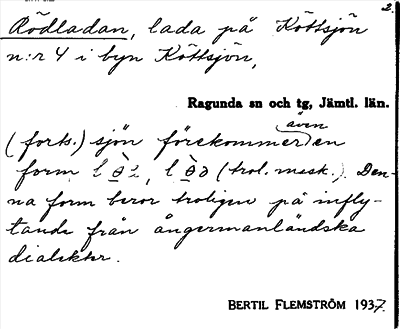 2.
Rödladan, lada på Köttsjön
n:r 4 i byn Köttsjön,
Ragunda sn och tg, Jämtl. län.
(forts.) sjön förekommer även en
form (trol. mask.). Den-
na form beror troligen på infly-
tande från ångermanländska
dialekter.
BERTIL FLEMSTRÖM 1937.